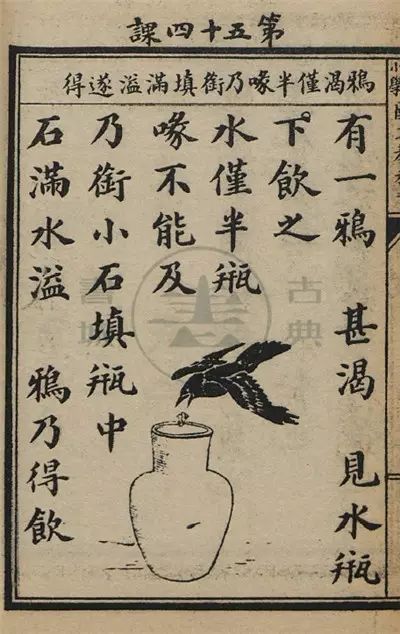 第五十四課
鴉渴僅半喙乃銜填滿溢遂得
有一鴉 甚渴 見水瓶
下飲之
水僅半瓶
喙不能及
乃銜小石填瓶中
石滿水溢 鴉乃得飲
古典
書城